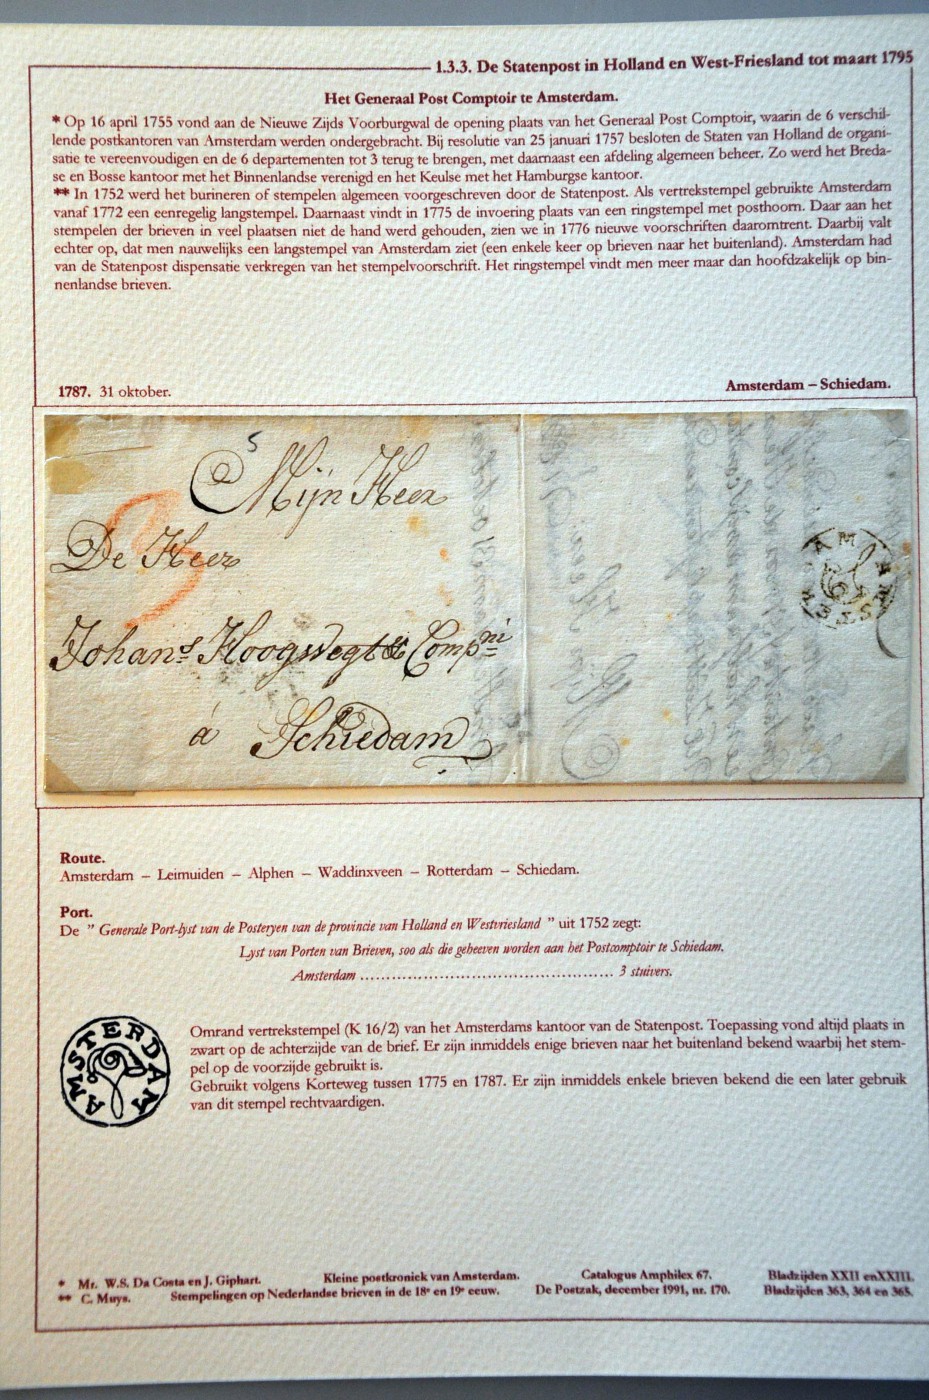 1.3.3. De Statenpost in Holland en West-Friesland tot maart 1795
Het Generaal Post Comptoir te Amsterdam.
* Op 16 april 1755 vond aan de Nieuwe Zijds Voorburgwal de opening plaats van het Generaal Post Comptoir, waarin de 6 verschil-
lende postkantoren van Amsterdam werden ondergebracht. Bij resolutie van 25 januari 1757 besloten de Staten van Holland de organi-
satie te vereenvoudigen en de 6 departementen tot 3 terug te brengen, met daarnaast een afdeling algemeen beheer. Zo werd het Breda-
se en Bosse kantoor met het Binnenlandse verenigd en het Keulse met het Hamburgse kantoor.
** In 1752 werd het burineren of stempelen algemeen voorgeschreven door de Statenpost. Als vertrekstempel gebruikte Amsterdam
vanaf 1772 een eenregelig langstempel. Daarnaast vindt in 1775 de invoering plaats van een ringstempel met posthoorn. Daar aan het
stempelen der brieven in veel plaatsen niet de hand werd gehouden, zien we in 1776 nieuwe voorschriften daaromtrent. Daarbij valt
echter op, dat men nauwelijks een langstempel van Amsterdam ziet (een enkele keer op brieven naar het buitenland). Amsterdam had
van de Statenpost dispensatie verkregen van het stempelvoorschrift. Het ringstempel vindt men meer maar dan hoofdzakelijk op bin-
nenlandse brieven.
1787. 31 oktober.
Amsterdam – Schiedam.
5
Mijn Heer
De Heer
3
Johans Hoogwegt & Compni
á Schiedam
AMSTERDAM
Route.
Amsterdam – Leimuiden – Alphen – Waddinxveen – Rotterdam – Schiedam.
Port.
De " Generale Port-lyst van de Posteryen van de provincie van Holland en Westvriesland " uit 1752 zegt:
Lyst van Porten van Brieven, soo als die geheeven worden aan het Postcomptoir te Schiedam.
Amsterdam ................................................ 3 stuivers.
AMSTERDAM
Omrand vertrekstempel (K 16/2) van het Amsterdams kantoor van de Statenpost. Toepassing vond altijd plaats in
zwart op de achterzijde van de brief. Er zijn inmiddels enige brieven naar het buitenland bekend waarbij het stem-
pel op de voorzijde gebruikt is.
Gebruikt volgens Korteweg tussen 1775 en 1787. Er zijn inmiddels enkele brieven bekend die een later gebruik
van dit stempel rechtvaardigen.
* Mr. W.S. Da Costa en J. Giphart. Kleine postkroniek van Amsterdam. Catalogus Amphilex 67. Bladzijden XXII enXXIII.
** C. Muys. Stempelingen op Nederlandse brieven in de 18e en 19e eeuw. De Postzak, december 1991, nr. 170. Bladzijden 363, 364 en 365.